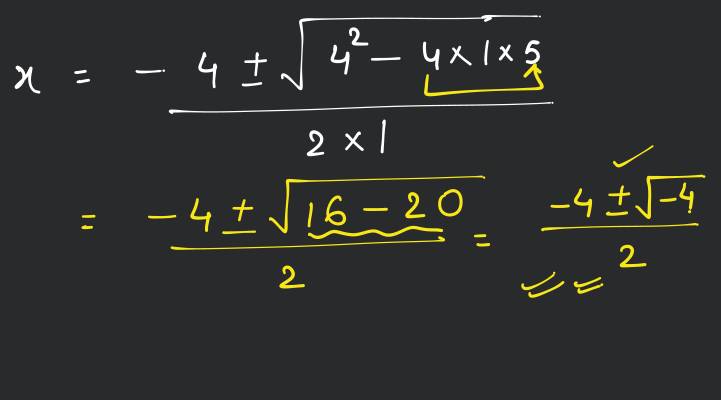 x = - 4 ± √(4² - 4 × 1 × 5) / 2 × 1
= -4 ± √(16 - 20) / 2 = -4 ± √-4 / 2